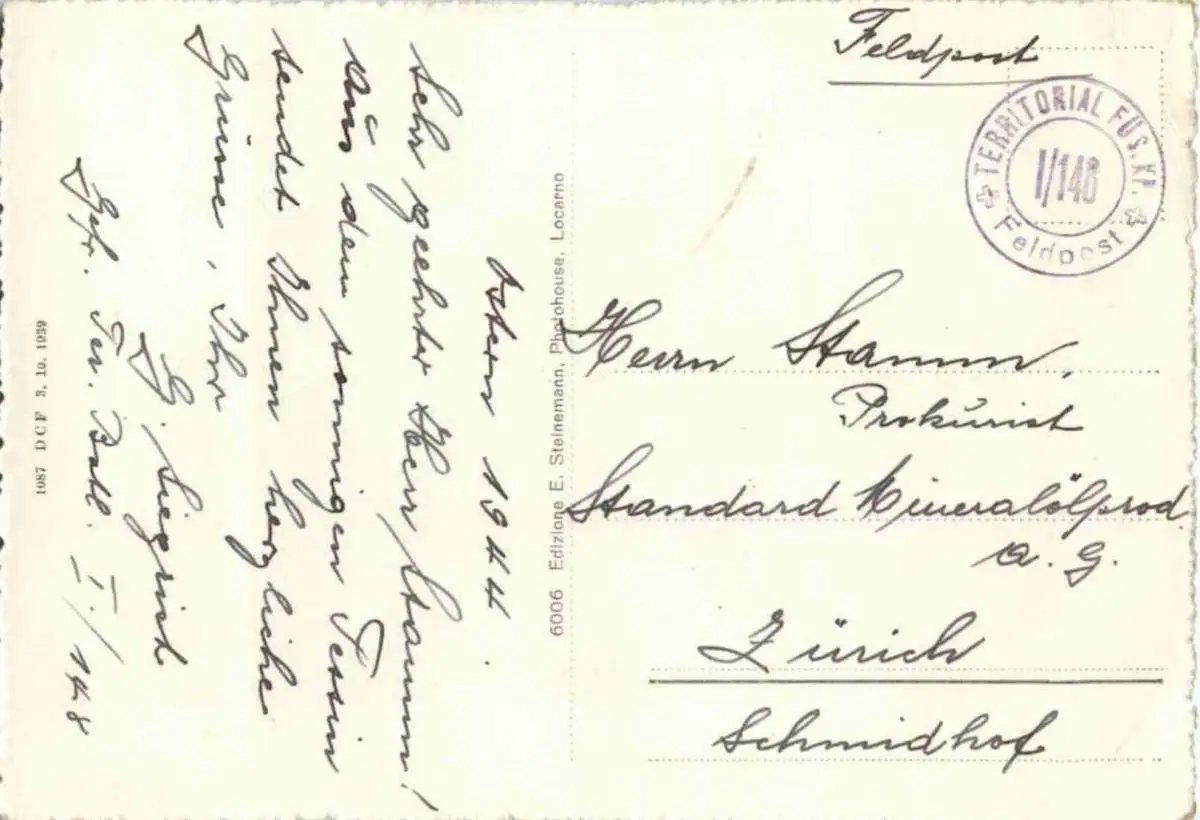 Feldpost
TERRITORIAL FÜS. KP.
I/148
Feldpost
Herrn Stamm,
Prokurist
Standard Mineralölprod
A. G.
Zürich
Schmidhof
6006 Edizione E. Steinemann, Photohouse, Locarno
Ostern 1944.
Sehr geehrter Herr Stamm!
Aus dem sonnigen Tessin
sendet Ihnen herzliche
Grüsse, Ihr
G. Siegrist
Gfr. Ter. Batl. I./148
1987 DCF 3. 10. 1939